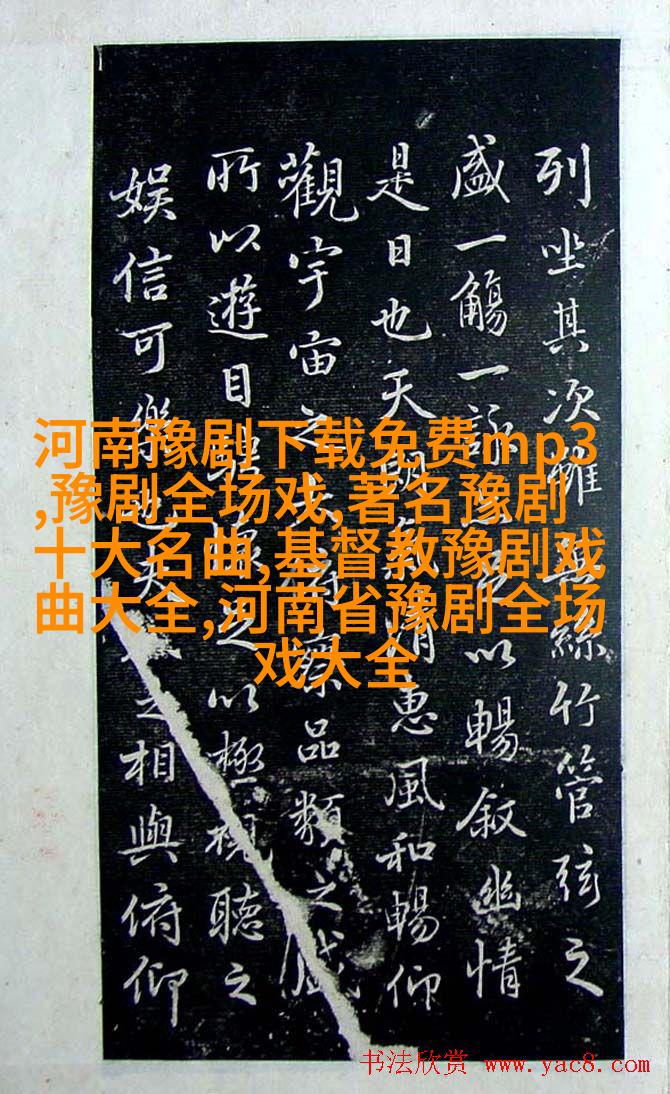 列坐其次雖無絲竹管弦之
盛一觴一詠亦足以暢叙幽情
是日也天朗氣清惠風和暢仰
觀宇宙之大俯察品類之盛
所以遊目騁懷足以極視聽之
娛信可樂也夫之相與俯仰
河南豫剧下载免费mp3
,豫剧全场戏,著名豫剧
十大名曲,基督教豫剧戏
曲大全,河南省豫剧全场
戏大全
书法欣赏 www.yac8.com